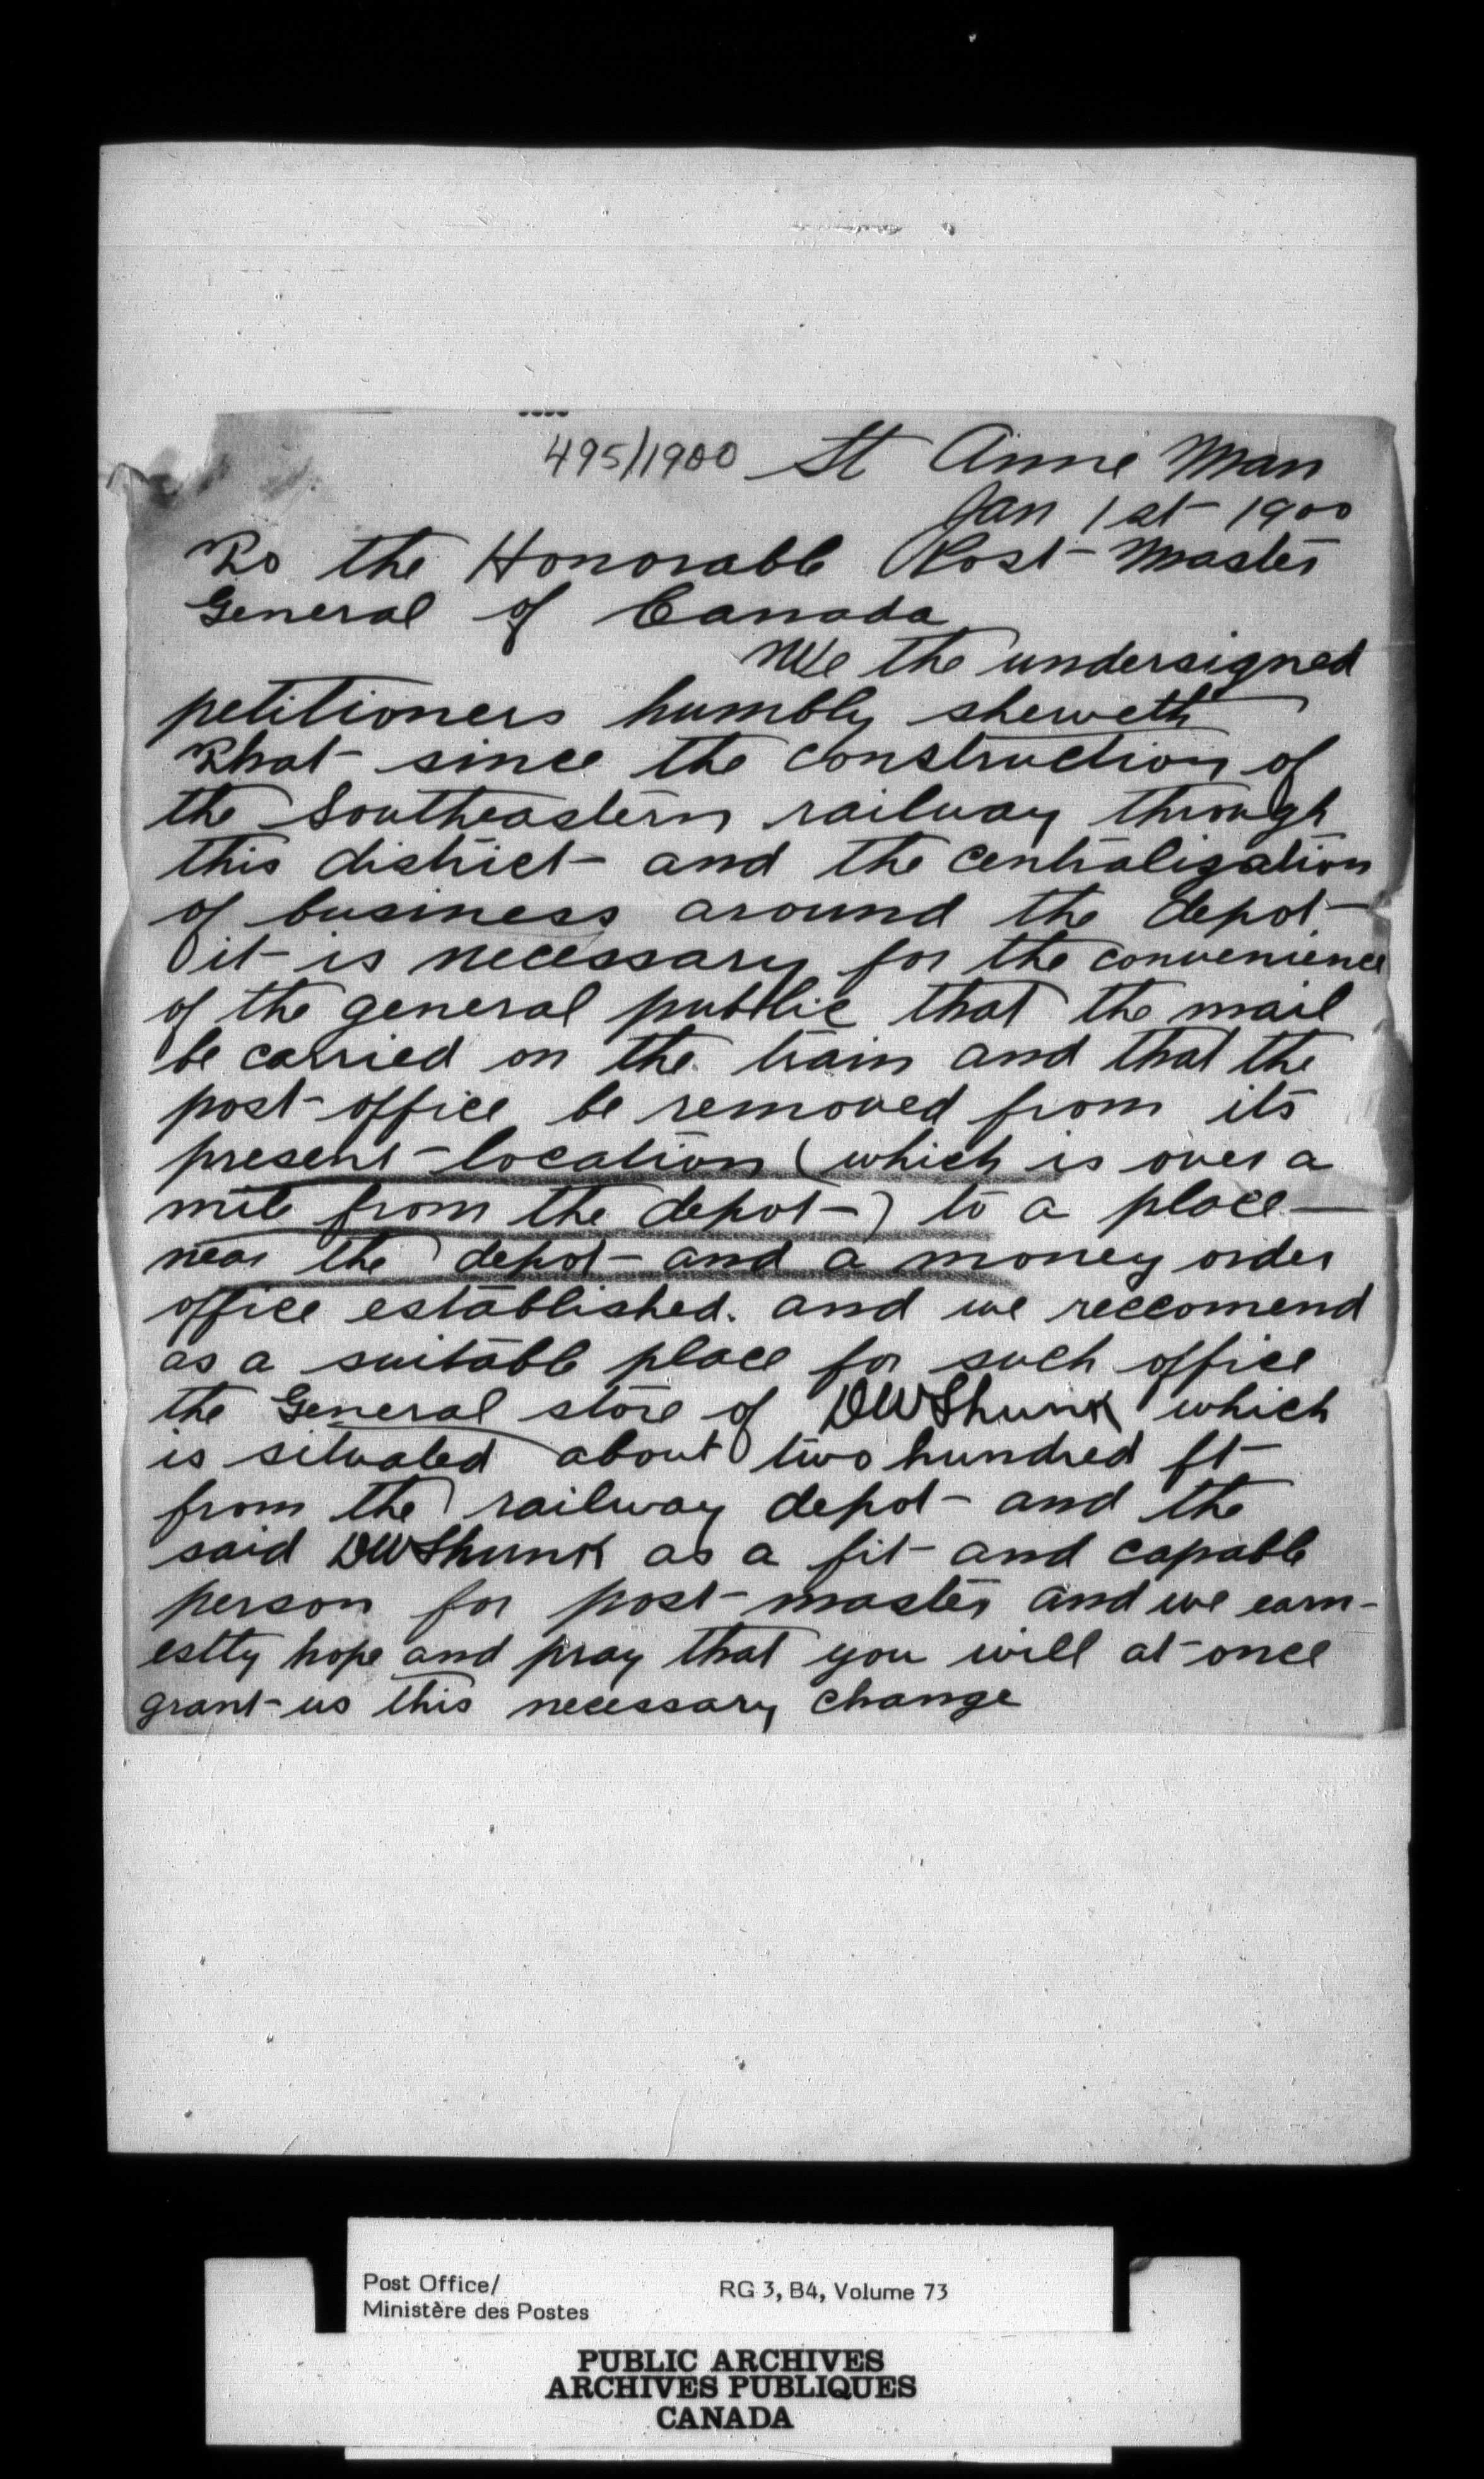 495/1900 St Anne Man
Jan 1st 1900
To the Honorable Post-Master
General of Canada
We the undersigned
petitioners humbly sheweth
That since the construction of
the Southeastern railway through
this district and the centralization
of business around the depot
it is necessary for the convenience
of the general public that the mail
be carried on the train and that the
post-office be removed from its
present location (which is over a
mile from the depot) to a place
near the depot and a money order
office established. and we reccomend
as a suitable place for such office
the General store of DW Shunk which
is situated about two hundred ft
from the railway depot and the
said DW Shunk as a fit and capable
person for post-master and we earn-
estly hope and pray that you will at once
grant us this necessary change
Post Office/
Ministère des Postes
RG 3, B4, Volume 73
PUBLIC ARCHIVES
ARCHIVES PUBLIQUES
CANADA